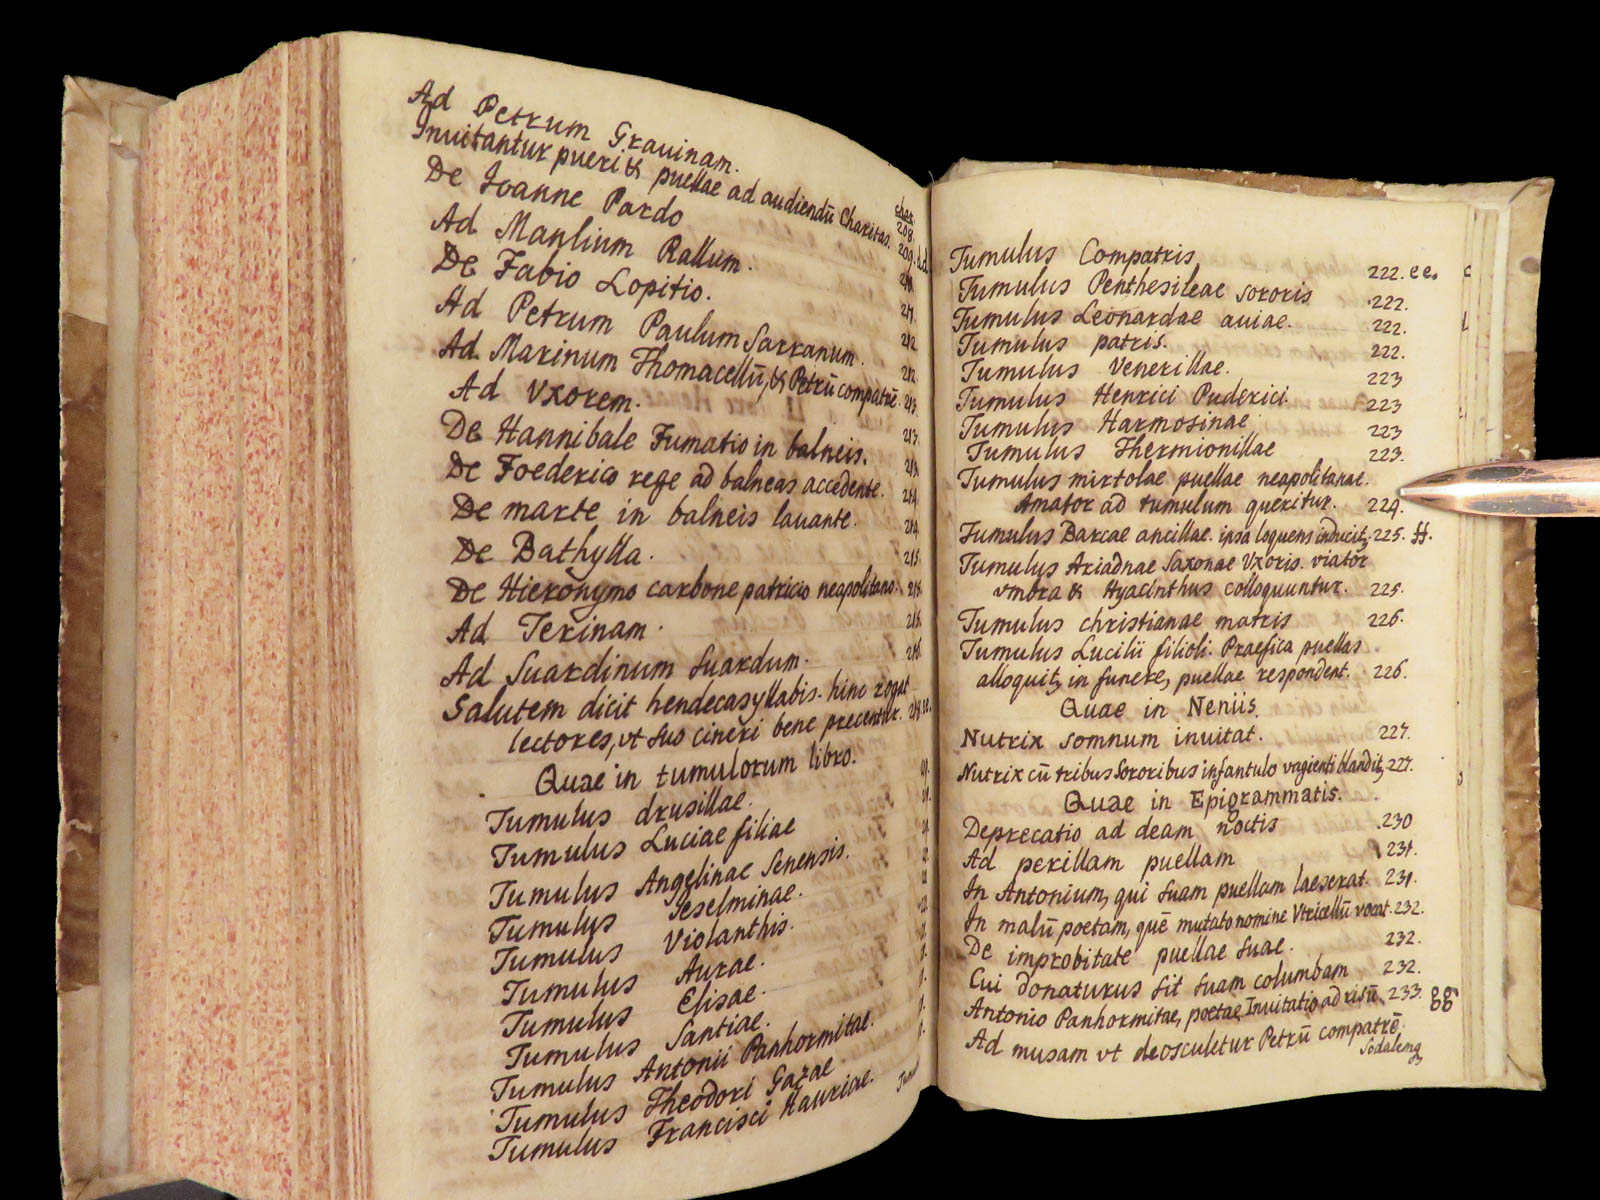 Ad Petrum Grauinam.
Inuitantur pueri & puellae ad audiendū Charitas. 208.
De Ioanne Pardo 209. dd
Ad Manlium Rallum.
De Fabio Lopitio. 211.
Ad Petrum Paulum Sarranum. 212
Ad Marinum Thomacellū, & Petrū compatrē. 212
Ad Vxorem. 213.
De Hannibale Fumatio in balneis. 213.
De Foederico rege ad balneas accedente. 213
De marte in balneis lauante. 214
De Bathylla. 214
De Hieronymo carbone patricio neapolitano. 215
Ad Terinam.
Ad Suardinum Suardum.
Salutem dicit hendecasyllabis. hinc rogat
lectores, vt suo cineri bene precentur.
Quae in tumulorum libro.
Tumulus drusillae.
Tumulus Luciae filiae
Tumulus Angelinae Senensis.
Tumulus Seselminae.
Tumulus Violanthis.
Tumulus Aurae.
Tumulus Elisae.
Tumulus Santiae.
Tumulus Antonii Panhormitae.
Tumulus Theodori Gazae
Tumulus Francisci Kauriae.
Tumul
Tumulus Compatris 222. ee.
Tumulus Penthesileae sororis 222.
Tumulus Leonardae auiae. 222.
Tumulus patris. 222.
Tumulus Venerillae. 223
Tumulus Henrici Puderici 223
Tumulus Harmosinae 223
Tumulus Thermionillae 223.
Tumulus mirtolae puellae neapolitanae.
Amator ad tumulum queritur. 224.
Tumulus Barcae ancillae. ipsa loquens inducit, 225. ff.
Tumulus Ariadnae Saxonae Vxoris. viator
vmbra & Hyacinthus colloquuntur. 225.
Tumulus christianae matris 226.
Tumulus Lucilii filioli. Praefica puellas
alloquit, in funere, puellae respondent. 226.
Quae in Neniis.
Nutrix somnum inuitat. 227.
Nutrix cū tribus sororibus infantulo vagienti blandit, 227.
Quae in Epigrammatis.
Deprecatio ad deam noctis 230
Ad perillam puellam 231.
In Antonium, qui suam puellam laeserat. 231.
In malū poetam, quē mutato nomine Vtricellū vocat. 232.
De improbitate puellae suae. 232.
Cui donaturus sit suam columbam 232.
Antonio Panhormitae, poetae, Inuitatio ad risū. 233. gg
Ad musam vt deosculetur Petrū compatrē.
Sodaleng